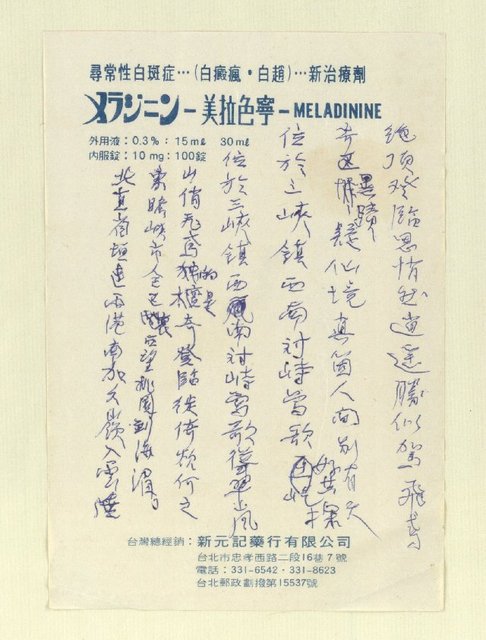 尋常性白斑症…(白癜瘋・白趙)…新治療劑
メラジニン–美拉色寧–MELADININE
外用液：0.3%：15mℓ 30mℓ
內服錠：10mg：100錠
絕頂登臨思悄然逍遥勝似駕飛
奇逢墨蹟疑仙境真箇人間別有天
位於三峽鎮西南對峙鶯歌
位於三峽鎮西南對峙鶯歌
山俏飛鳶獨的是奇登臨徙倚欲何之
東瞻峽市全望桃園到海湄
北直省垣連兩港南加久嶺入雲
台灣總經銷：新元記藥行有限公司
台北市忠孝西路二段16巷7號
電話：331-6542・331-8623
台北郵政劃撥第15537號